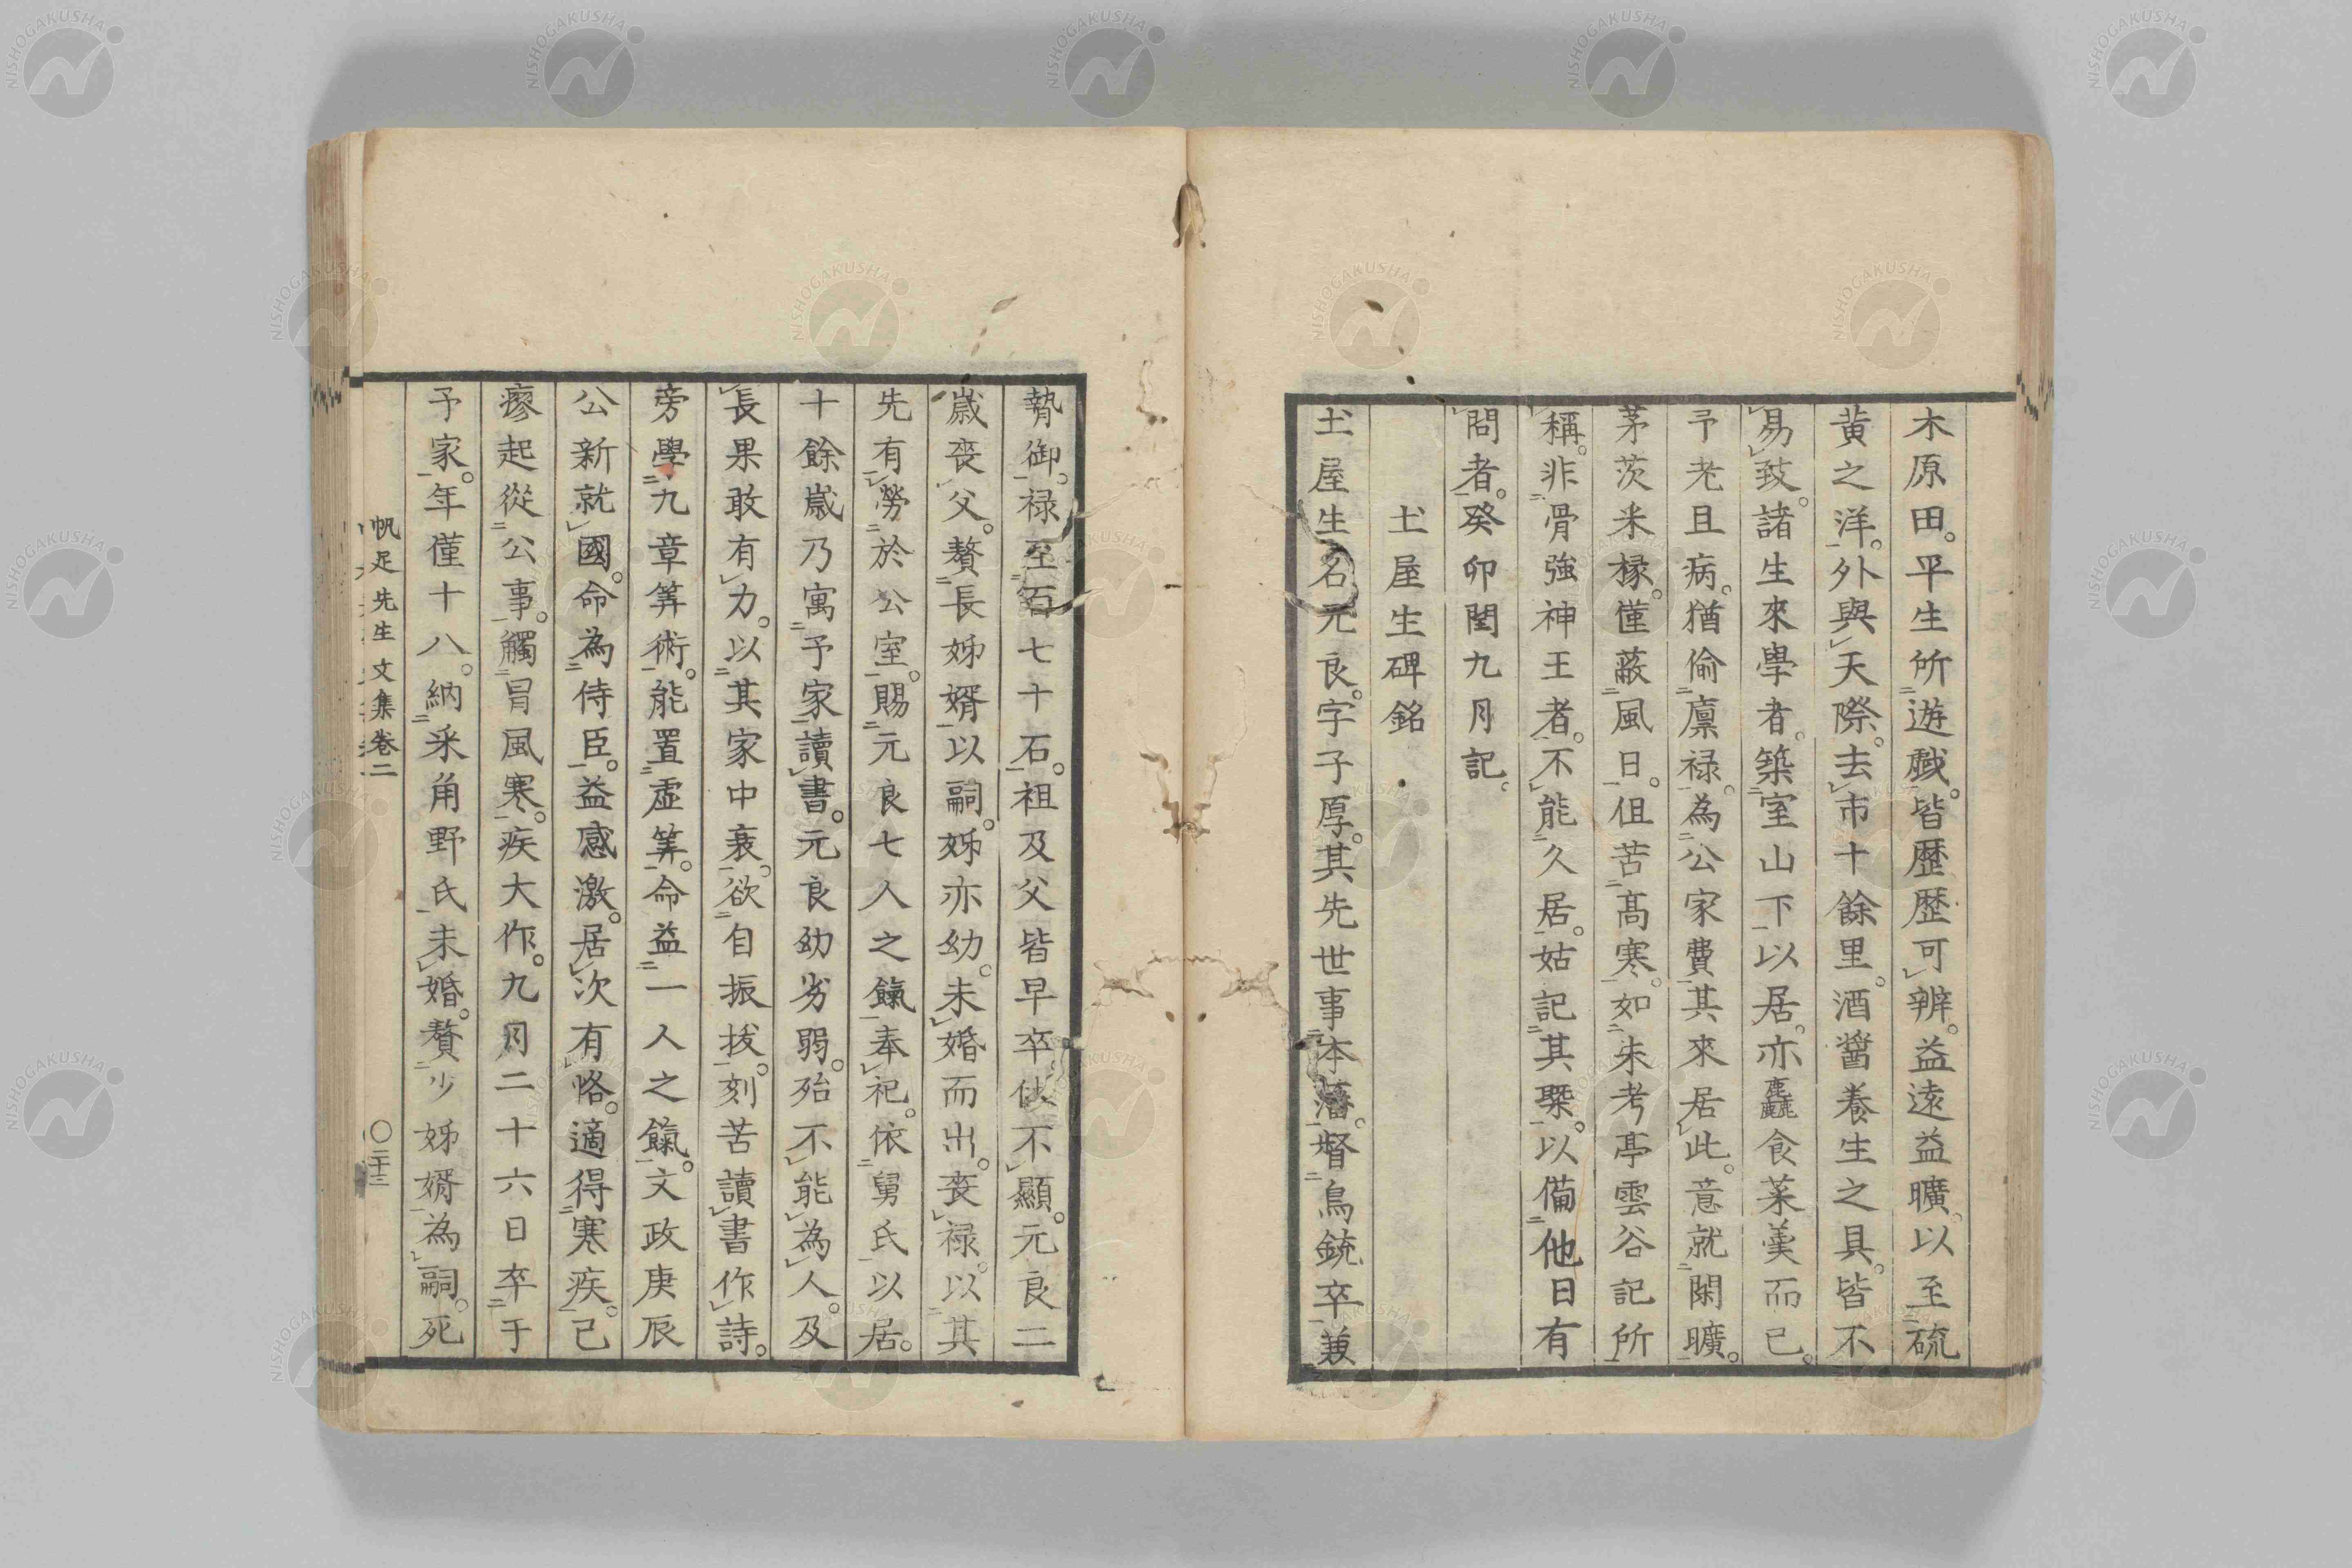 木原田。平生所遊戲。皆歷歷可辨。益遠益曠。以至硫
黃之洋。外與天際。去市十餘里。酒醬養生之具。皆不
易致。諸生來學者。築室山下以居。亦麤食菜羹而已。
予老且病。猶偷廩祿。為公家費其來居此。意就閑曠。
茅茨釆椽。僅蔽風日。但苦高寒。如朱考亭雲谷記所
稱。非骨強神王者。不能久居。姑記其槩。以備他日有
問者。癸卯閏九月記。
土屋生碑銘
土屋生名元良。字子厚。其先世事本藩。督鳥銃卒兼
贄御。祿至石七十石。祖及父皆早卒 不顯。元良二
歲喪父。贅長姊婿以嗣。姊亦幼。未婚而出。喪祿。以其
先有勞於公室。賜元良七人之餼奉祀。依舅氏以居。
十餘歲乃寓予家讀書。元良幼劣弱。殆不能為人。及
長果敢有力。以其家中衰。欲自振拔。刻苦讀書作詩。
旁學九章筭術。能置虛筭。命益一人之餼。文政庚辰
公新就國。命為侍臣。益感激。居次有恪。適得寒疾。已
瘳起從公事。觸冒風寒。疾大作。九月二十六日卒于
予家。年僅十八。納采角野氏未婚。贅少姊婿為嗣。死
帆足先生文集卷二
〇二十三